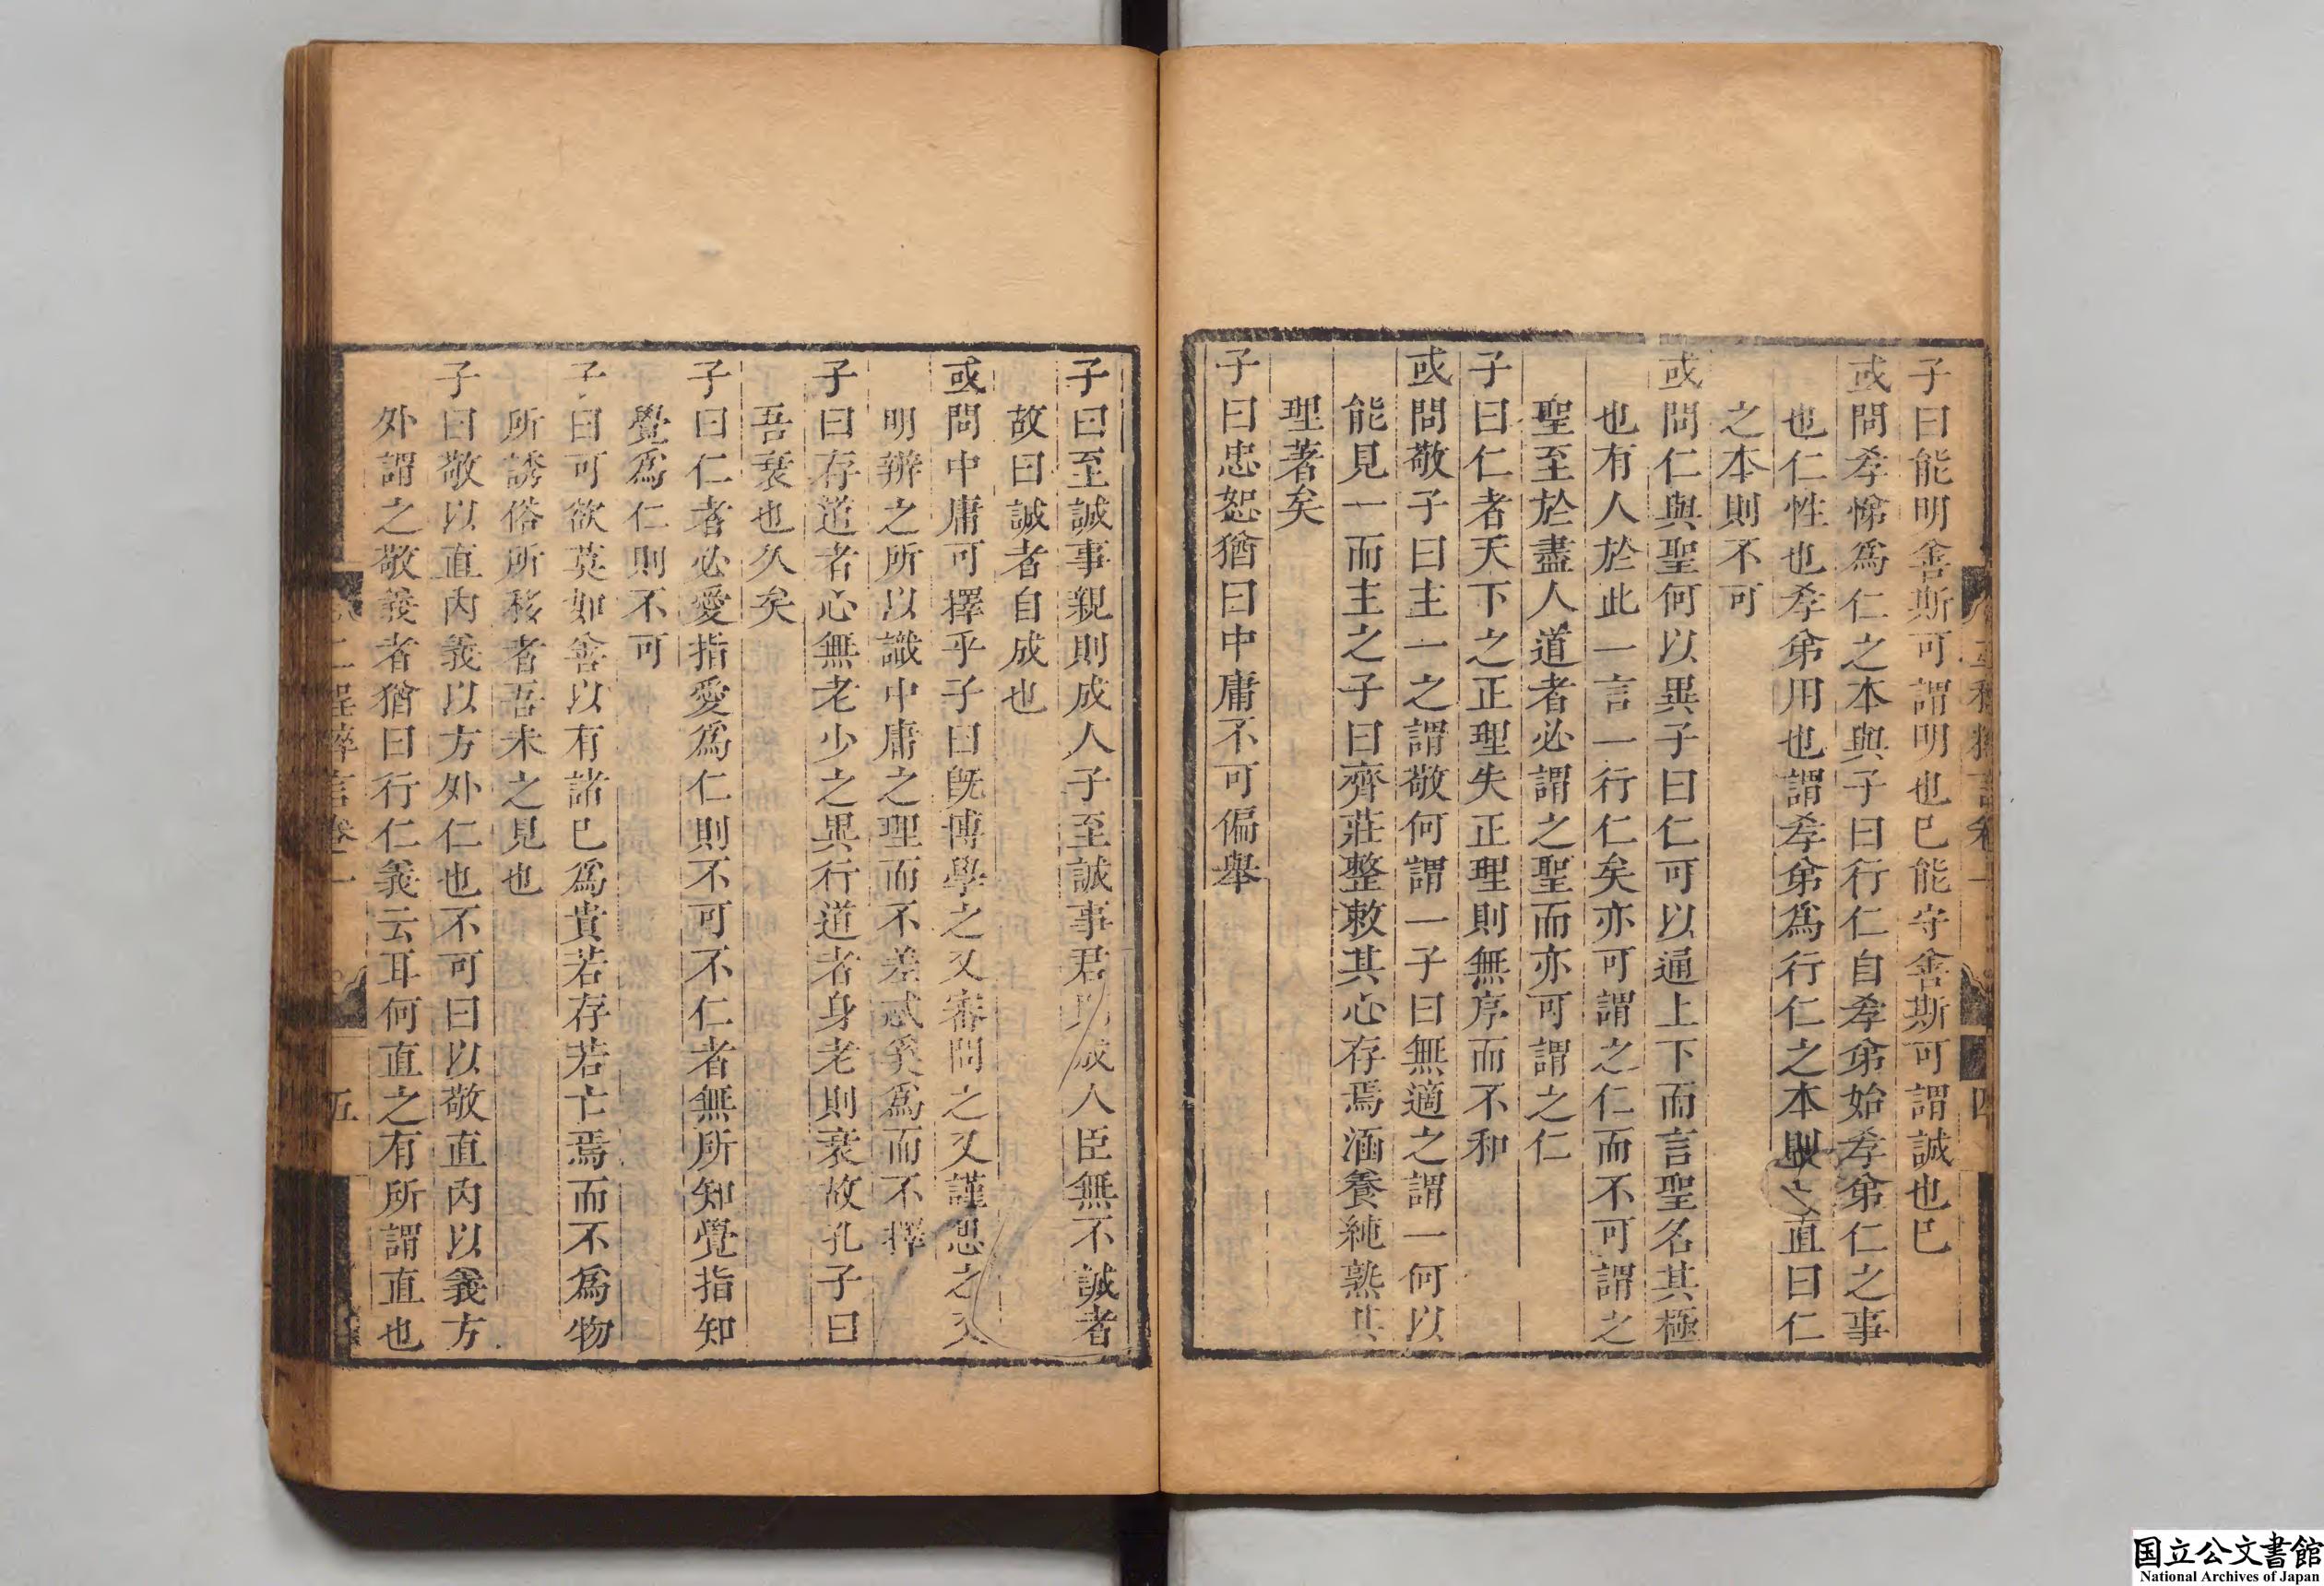 子曰能明善斯可謂明也已能守善斯可謂誠也已
或問孝悌爲仁之本與子曰行仁自孝弟始孝弟仁之事
也仁性也孝弟用也謂孝弟爲行仁之本則可直曰仁
之本則不可
或問仁與聖何以異子曰仁可以通上下而言聖名其極
也有人於此一言一行仁矣亦可謂之仁而不可謂之
聖至於盡人道者必謂之聖而亦可謂之仁
子曰仁者天下之正理失正理則無序而不和
或問敬子曰主一之謂敬何謂一子曰無適之謂一何以
能見一而主之子曰齊莊整敕其心存焉涵養純熟其
理著矣
子曰忠恕猶曰中庸不可偏舉
四
子曰至誠事親則成人子至誠事君則成人臣無不誠者
故曰誠者自成也
或問中庸可擇乎子曰旣博學之又審問之又謹思之又
明辨之所以識中庸之理而不差忒奚爲而不擇
子曰存道者心無老少之異行道者身老則衰故孔子曰
吾衰也久矣
子曰仁者必愛指愛爲仁則不可不仁者無所知覺指知
覺爲仁則不可
子曰可欲莫如善以有諸己爲貴若存若亡焉而不爲物
所誘俗所移者吾未之見也
子曰敬以直內義以方外仁也不可曰以敬直內以義方
外謂之敬義者猶曰行仁義云耳何直之有所謂直也
二程粹言卷一
五
国立公文書館
National Archives of Japan